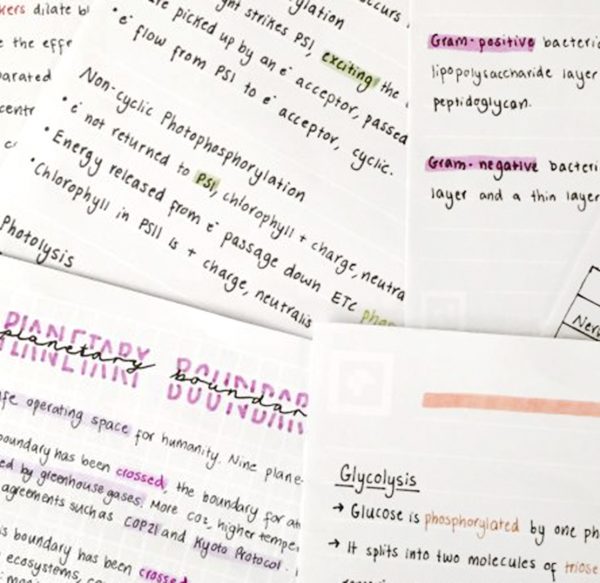 kers dilate
e the effe
parated
centr
ght strikes PSI, exciting the
are picked up by an e⁻ acceptor, passed
• e⁻ flow from PSI to e⁻ acceptor, cyclic.
Non-cyclic Photophosphorylation
• e⁻ not returned to PSI, chlorophyll + charge, neutra
• Energy released from e⁻ passage down ETC
• Chlorophyll in PSII is + charge, neutralis
Photolysis
Gram-positive bacteri
lipopolysaccharide layer
peptidoglycan.
Gram-negative bacteri
layer and a thin layer
Nerv
PLANETARY BOUNDAR
planetary boundar
fe operating space for humanity. Nine plane
boundary has been crossed, the boundary for at
ed by greenhouse gases. More CO₂, higher temper
agreements such as COP21 and Kyoto Protocol.
s boundary has been crossed
ecosystems,
Glycolysis
→ Glucose is phosphorylated by one ph
→ It splits into two molecules of triose